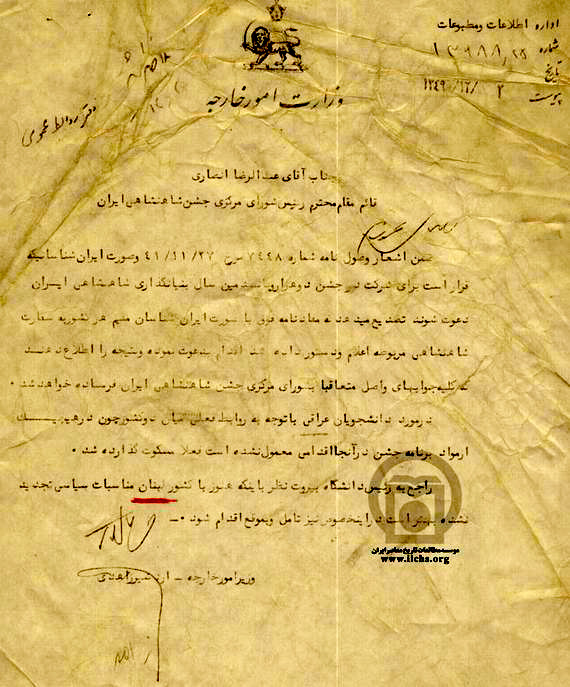 اداره اطلاعات ومطبوعات
شماره
تاریخ ۲ /۱۲/ ۱۳۴۹
پیوست
وزارت امور خارجه
دفتر روابط عمومی
جناب آقای عبدالرضا انصاری
قائم مقام محترم رئیس شورای مرکزی جشن شاهنشاهی ایران
ضمن اشعار وصول نامه شماره ۷۴۴۸ مورخ وصورت ایران شناسانیکه
قرار است برای شرکت در جشن دوهزاروپانصدمین سال بنیانگذاری شاهنشاهی ایران
دعوت شوند تصدیع میدهد که مفاد نامه فوق با صورت ایران شناسان مقیم هر کشور به سفارت
شاهنشاهی مربوطه اعلام ودستور داده شد اقدام بدعوت نموده ونتیجه را اطلاع دهند
که کلیه جوابهای واصل متعاقبا بشورای مرکزی جشن شاهنشاهی ایران فرستاده خواهد شد ۰
درمورد دانشجویان عراقی باتوجه به روابط فعلی میان دوکشور چون در هیچیک
ازموارد برنامه جشن در آنجا اقدامی معمول نشده است فعلا مسکوت گذارده شد ۰
راجع به رئیس دانشگاه بیروت نظر باینکه هنوز با کشور لبنان مناسبات سیاسی تجدید
نشده بهتر است در اینخصوص نیز تامل وبموقع اقدام شود ۰ــ
وزیر امور خارجه ــ اردشیر زاهدی
موسسه مطالعات تاریخ معاصر ایران
www.iichs.org